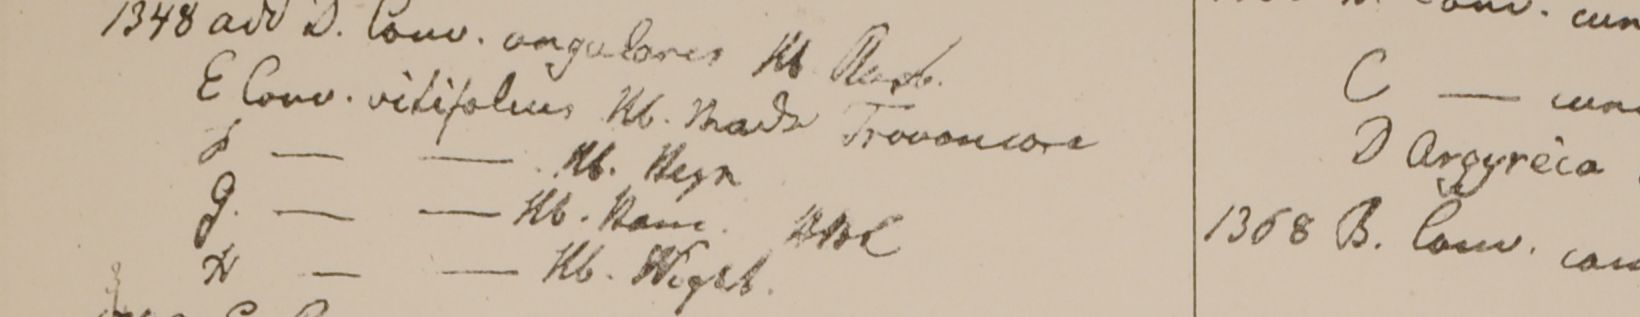 1348 add D. Conv. angularis Hb. Rottl.
E Conv. vitifolius Hb. Madr Travancore
F — — Hb. Heyn
G. — — Hb. Ham. HBC
H — — Hb. Wight.
C — cun
D Argyreia
1368 B. Conv.